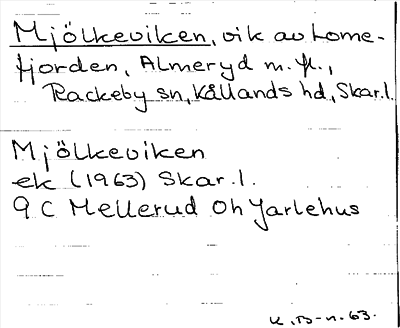 Mjölkeviken, vik av Lome-
fjorden, Almeryd m. fl.,
Rackeby sn, Kållands hd, Skar.l.
Mjölkeviken
ek (1963) Skar.l.
9 C Mellerud Oh Jarlehus
K. B-n. 63.